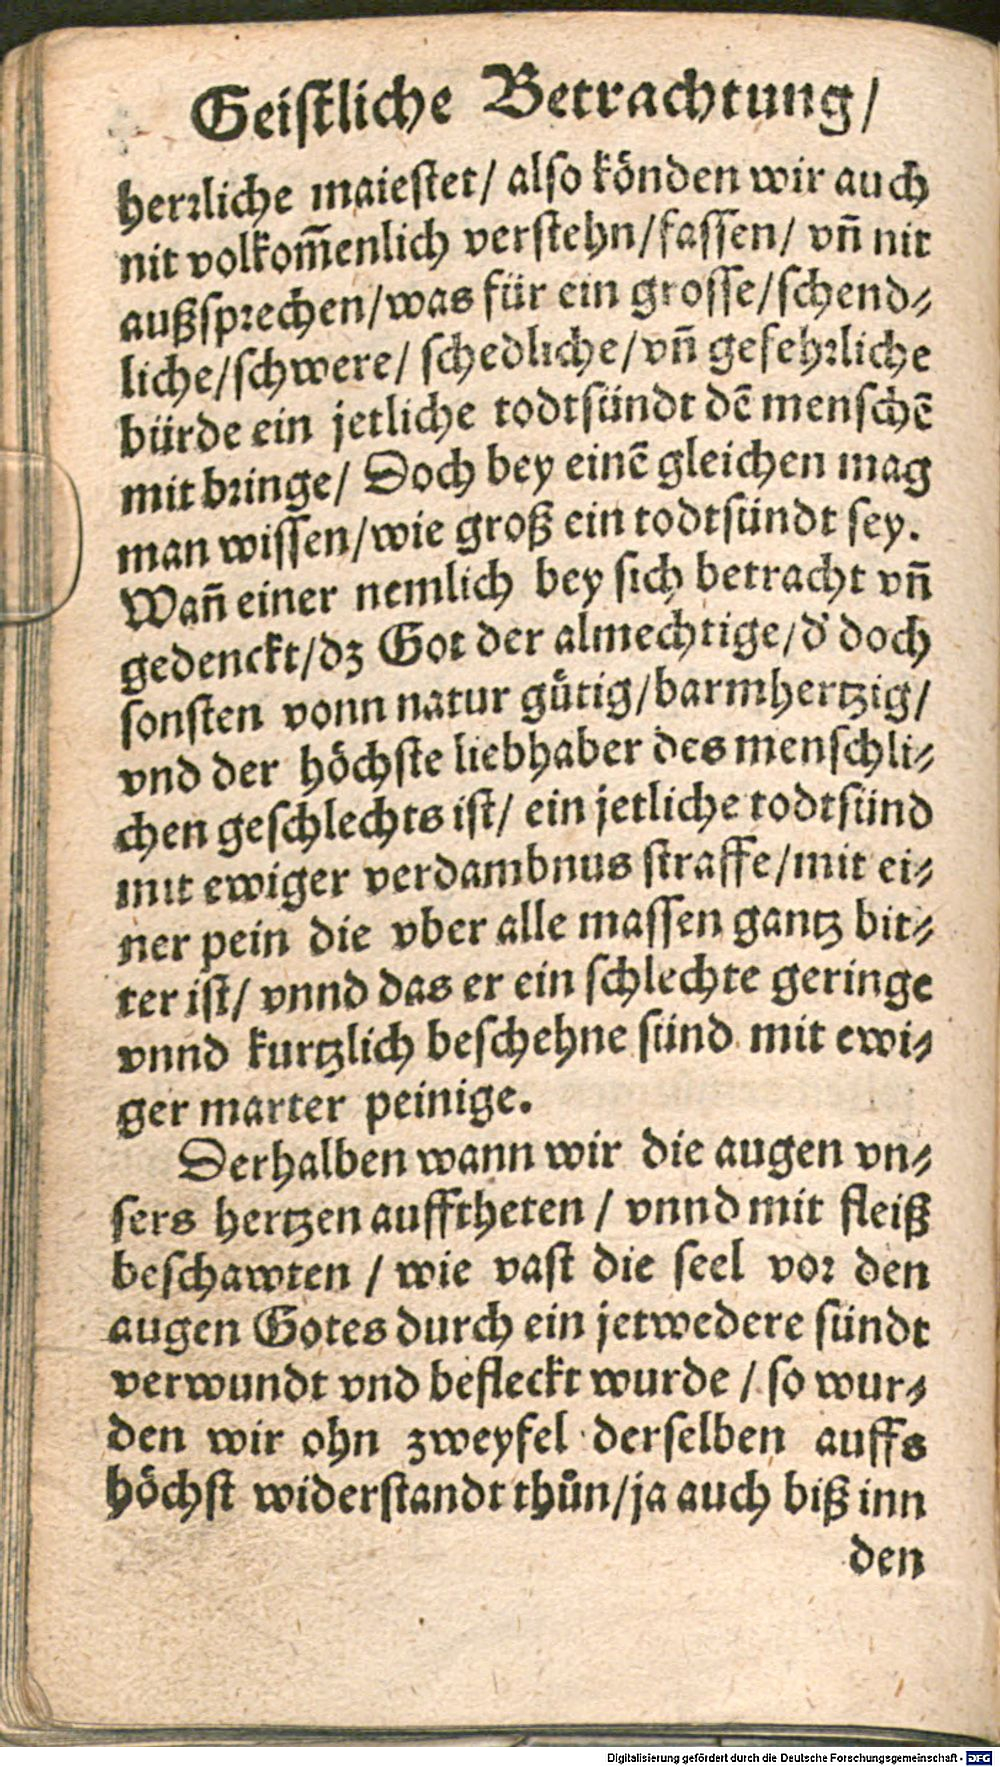 Geistliche Betrachtung/
herꝛliche maiestet/ also könden wir auch
nit volkom̃enlich verstehn/fassen/ vñ nit
außspꝛechen/was für ein grosse/schend⸗
liche/schwere/ schedliche/vñ gefehꝛliche
bürde ein jetliche todtsündt dē menschē
mit bꝛinge/ Doch bey einē gleichen mag
man wissen/wie groß ein todtsündt sey.
Wañ einer nemlich bey sich betracht vñ
gedenckt/dz Got der almechtige/d' doch
sonsten vonn natur gütig/barmhertzig/
vnd der höchste liebhaber des menschli⸗
chen geschlechts ist/ ein jetliche todtsünd
mit ewiger verdambnus straffe/mit ei⸗
ner pein die vber alle massen gantz bit⸗
ter ist/ vnnd das er ein schlechte geringe
vnnd kurtzlich beschehne sünd mit ewi⸗
ger marter peinige.
Derhalben wann wir die augen vn⸗
sers hertzen aufftheten / vnnd mit fleiß
beschawten / wie vast die seel voꝛ den
augen Gotes durch ein jetwedere sündt
verwundt vnd befleckt wurde / so wur⸗
den wir ohn zweyfel derselben auffs
höchst widerstandt thůn/ja auch biß inn
den
Digitalisierung gefördert durch die Deutsche Forschungsgemeinschaft - DFG